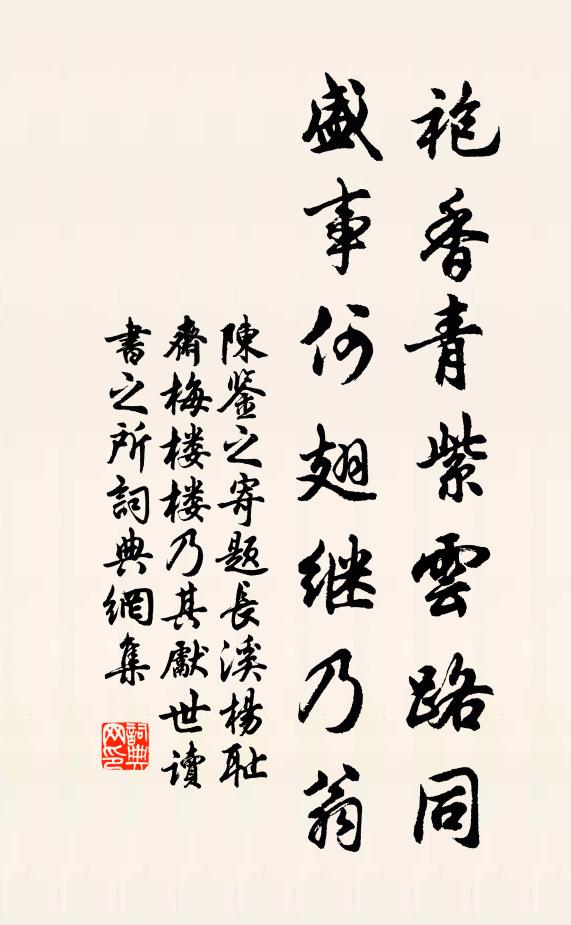 袍香青紫雲路同
盛事何翅继乃翁
陳鉴之寄题長溪楊耻
齋梅楼楼乃其獻世讀
書之所詞典網集
詞典网印